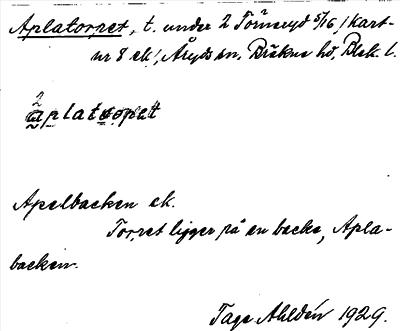 Aplatorpet, t. under 2 Törneryd 5/16 (kart-
nr 8 ek), Åryds sn, Bräkne hd, Blek. l.
2
aplatorpet
Apelbacken ek.
Torpet ligger på en backe, Apla-
backen.
Tage Ahldén 1929.